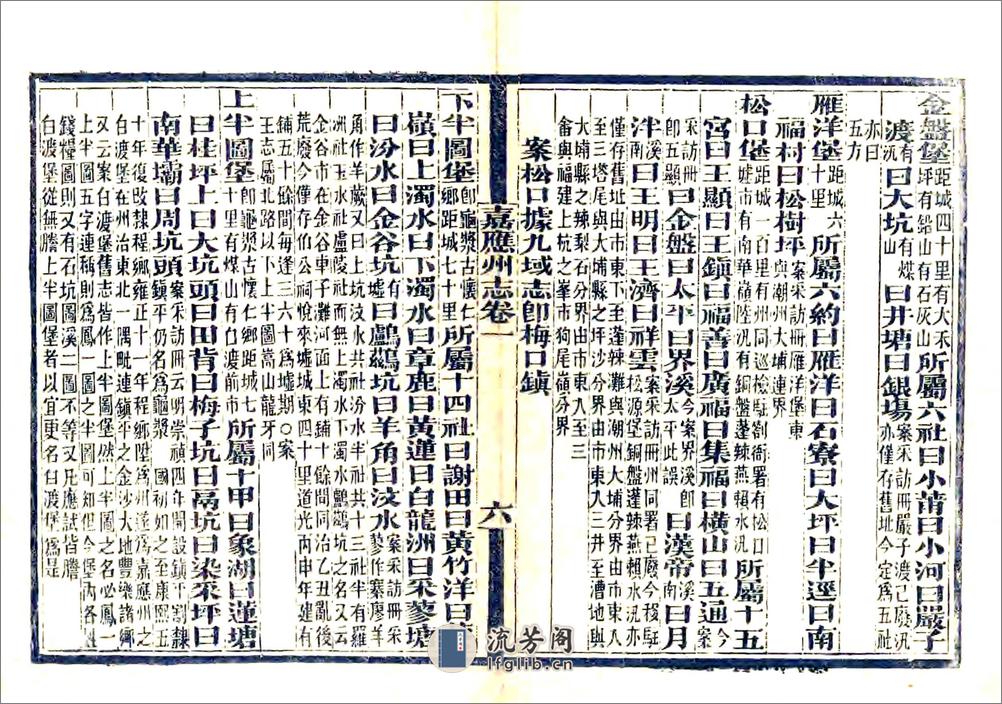 金盤堡距城四十里有大禾坪有鉛山有石灰山所屬六社曰小莆曰小河曰嚴子
渡有汛曰大坑有煤山曰井塘曰銀場案采訪冊嚴子渡已廢汛亦僅存舊址今定爲五社
亦曰五方
雁洋堡距城六十里所屬六約曰雁洋曰石寮曰大坪曰半逕曰南
福村曰松樹坪案采訪冊雁洋堡東與潮州大埔連界
松口堡距城一百里有州同巡檢駐劄衙署有松口墟市有南華嶺陸汛有銅盤蓬辣燕賴水汛所屬十五
宮曰王顯曰王鎮曰福善曰廣福曰集福曰橫山曰五通案今
采訪冊卽五顯曰金盤曰太平曰界溪案今界溪卽太平此誤曰漢帝南溪曰月
泮南溪曰王明曰王濟曰祥雲案采訪冊州同署已廢今移駐松源堡銅盤蓬辣燕賴水汛亦
僅存舊址由市東下至蓬辣灘與潮州大埔分界由市南人
至三塔尾與大埔縣之坪沙分界由市東入三井至漕地與
大埔縣之辣梨石分界由市東人至三
畲與福建上坑之峯市狗尾嶺分界
案松口據九域志卽梅口鎮
嘉應州志卷一
六
下半圖堡卽龜漿古懷仁鄉距城七十里所屬十四社曰謝田曰黃竹洋曰
嶺曰上濁水曰下濁水曰章鹿曰黃蓮曰白龍洲曰采蓼塘
曰汾水曰金谷坑有墟曰鸕鷀坑曰羊角曰汶水案采訪冊采蓼作寨廖羊
角作羊嚴又曰上坑汶水共社汾水半社共十三社半有羅
洲社玉水社盧陵社而無上濁水下濁水鸕鷀坑之名又云
金谷市金谷車子灘河面墟上有鋪十餘間同治乙丑亂後
荒廢今僅存伯公祠悅來墟城東四十里道光丙申年建有
鋪五十餘間每逢三六十爲墟期〇案
王志屬北路以下上半圖嵩山龍牙同
上半圖堡卽龜漿古懷仁鄉距城七十里有煤山有白渡市所屬十甲曰象湖曰蓮塘
曰桂坪上曰大坑頭曰田背曰梅子坑曰鬲坑曰染采坪曰
南華壩曰周坑頭案采訪冊云明崇禎四年間設鎮平割隸鎮平仍名爲龜漿國初如之至康熙五
十年復改隸程鄉雍正十一年程鄉陞爲州遂爲嘉應州之
白渡堡在州治東北一隅毗連鎮平之金沙大地豐樂諸鄉
又云案白渡堡舊志皆作上半圖堡然上半圖之名必鳳一
上半圖五字連稱則爲鳳一圖之半圖可知但今堡內各姓
錢糧圖則又有石坑圖溪二圖不等又凡應試皆謄
白渡堡從無謄上半圖堡者以宜更名白渡堡爲是
流芳閣
lfglib.cn